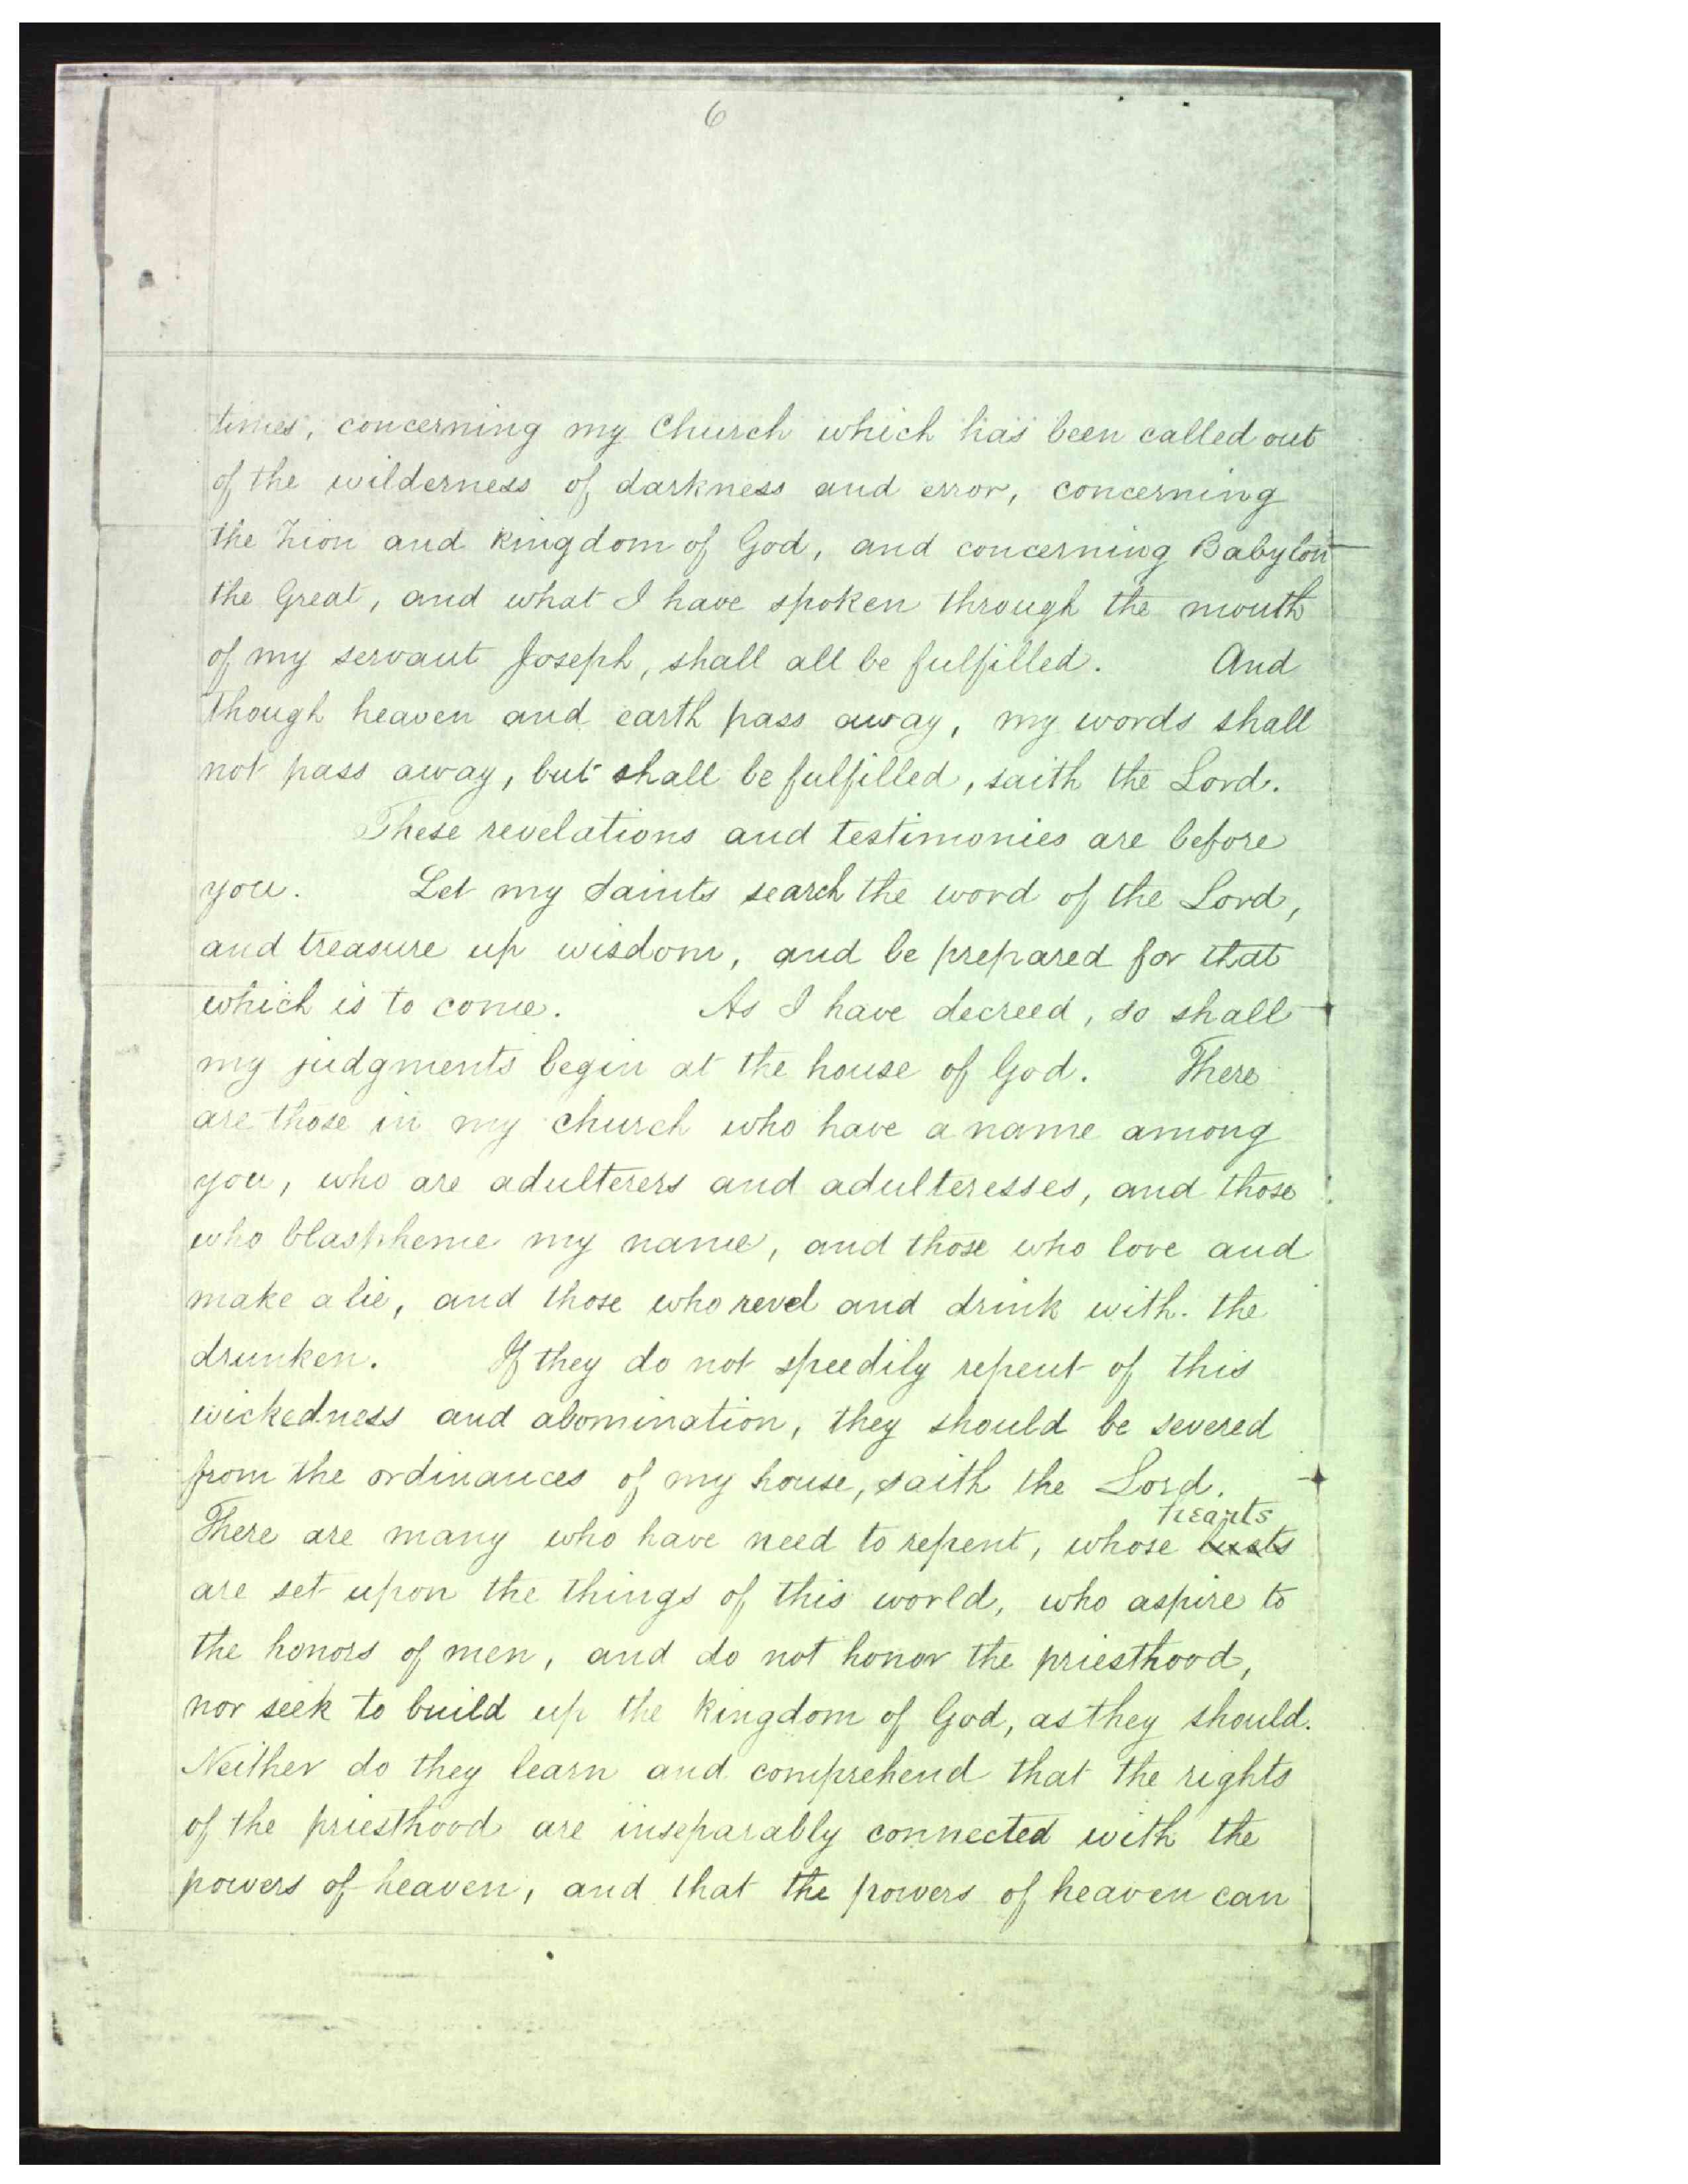 6
times, concerning my Church which has been called out
of the wilderness of darkness and error, concerning
the Zion and Kingdom of God, and concerning Babylon
the Great, and what I have spoken through the mouth
of my servant Joseph, shall all be fulfilled. And
though heaven and earth pass away, my words shall
not pass away, but shall be fulfilled, saith the Lord.
These revelations and testimonies are before
you. Let my Saints search the word of the Lord,
and treasure up wisdom, and be prepared for that
which is to come. As I have decreed, so shall
my judgments begin at the house of God. There
are those in my church who have a name among
you, who are adulterers and adulteresses, and those
who blaspheme my name, and those who love and
make a lie, and those who revel and drink with the
drunken. If they do not speedily repent of this
wickedness and abomination, they should be severed
from the ordinances of my house, saith the Lord.
hearts
There are many who have need to repent, whose lusts
are set upon the things of this world, who aspire to
the honors of men, and do not honor the priesthood,
nor seek to build up the Kingdom of God, as they should.
Neither do they learn and comprehend that the rights
of the priesthood are inseparably connected with the
powers of heaven, and that the powers of heaven can